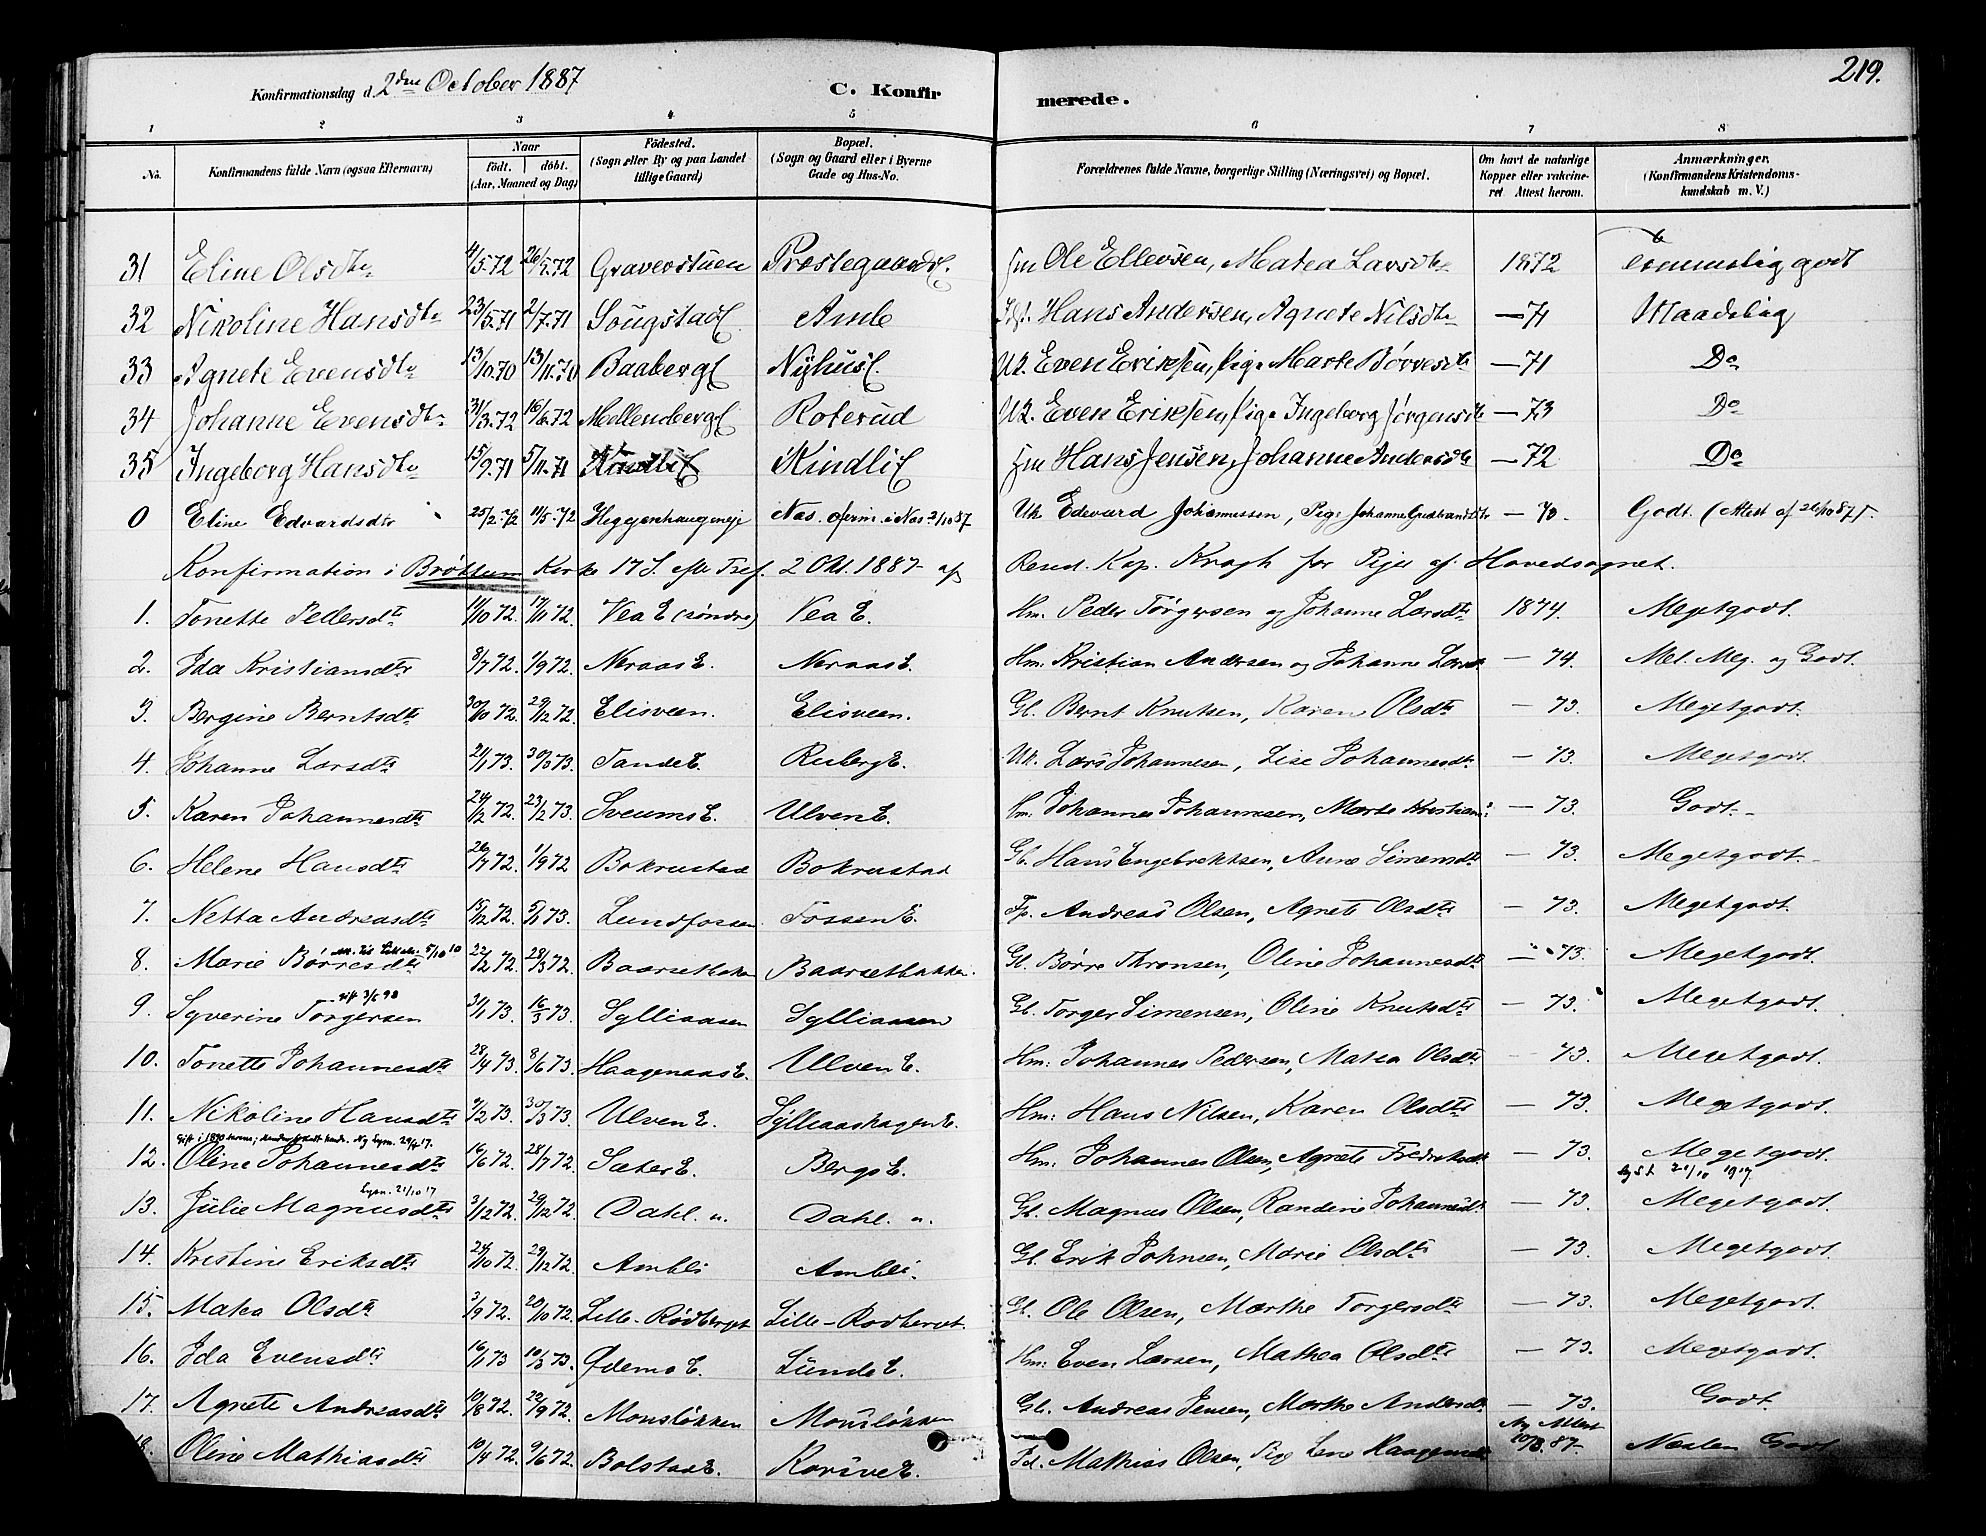 219.
Konfirmationsdag d. 2den October 1887 C. Konfirmerede.
1 2 3 4 5 6 7 8
No. Konfirmandens fulde Navn (ogsaa Efternavn) Naar født. døbt. (Aar, Maaned og Dag) Födested. (Sogn eller By og paa Landet tillige Gaard) Bopæl. (Sogn og Gaard eller i Byerne Gade og Hus-No. Forældrenes fulde Navne, borgerlige Stilling (Næringsvei) og Bopæl. Om havt de naturlige Kopper eller vakcineret Attest herom. Anmærkninger, (Konfirmandens Kristendomskundskab m. V.)
31 Eline Olsdtr 4/5.72 26/5.72 Graverstuen PræstegaardsE. Hm Ole Ellevsen, Matea Larsdtr 1872 Temmelig godt
32 Nikoline Hansdtr 23/5.71 2/7.71 SougstadE. Amb Hans Andersen, Agnete Nilsdtr — 71 Maadelig
33 Agnete Evensdtr 13/10.70 13/11.70 BaabergE NyhusE. Uk. Even Eriksen, Pige Marte Børresdtr — 71 Do
34 Johanne Evensdtr 31/3.72 16/6.72 MellembergE Roterud Uk. Even Eriksen, Pige Ingeborg Jørgensdtr — 73 Do
35 Ingeborg Hansdtr 15/9.71 5/11.71 KindliE KindliE Hm Hans Jensen, Johanne Andersdtr — 72 Do
0 Eline Edvardsdtr 25/2.72 11/5.72 Heggenhaugeneje Næs. i Næs 2/10 87 Uk Edevard Johannessen, Pige Johanne Gudbrandsdtr — 70. Godt. (Attest af 26/10 87).
Konfirmation i Brøttum Kirke 17 S. efter Tref. 2 Okt. 1887 af Resid. Kap. Kragh for Piger af Hovedsognet.
1. Tonette Pedersdtr 11/10 72. 17/11 72. Vea E (søndre) Vea E. Hm. Peder Torgersen og Johanne Larsdtr 1874. Megetgodt.
2. Ida Kristiansdtr 8/7 72. 1/9 72. Neraas E. Neraas E. Hm. Kristian Andersen og Johanne Larsdtr — 74. Mel. Meg. og Godt.
3. Bergine Berntsdtr 30/10 72. 29/12 72. Elisveen. Elisveen. Gl. Bernt Knutsen, Karen Olsdtr — 73. Megetgodt.
4. Johanne Larsdtr 21/1 73. 30/3 73. Tande E. Ruberg E. Uk. Lars Johannesen, Lise Johannesdtr — 73. Megetgodt.
5. Karen Johannesdtr 24/12 72. 23/2 73. Sveums E. Ulven E. Hm. Johannes Johannesen, Marte Kristians — 73. Godt.
6. Helene Hansdtr 26/7 72. 1/9 72 Bokrustad Bokrustad Gl. Hans Engebrektsen, Anne Simensdtr — 73. Megetgodt.
7. Netta Andreasdtr 15/12 72. 5/1 73. Lundfossen Fossen E. Fp. Andreas Olsen, Agnete Olsdtr — 73. Megetgodt.
8. Marie Børresdtr 5/10 10 22/2 72. 28/3 72. Baarsetbakken Baarsetbakken. Gl. Børre Thronsen, Oline Johannesdtr — 73. Megetgodt.
9. Syverine Torgersen gift 3/6 98 31/1 73. 16/3 73. Sylliaasen Sylliaasen Gl. Torger Simensen, Oline Knutsdtr — 73. Megetgodt.
10. Tonette Johannesdtr 28/4 73. 8/6 73. Haagenaas E. Ulven E. Hm. Johannes Pedersen, Matea Olsdtr — 73. Megetgodt.
11. Nikoline Hansdtr 9/2 73. 30/3 73. Ulven E. Sylliaashagen E. Hm: Hans Nilsen, Karen Olsdtr — 73. Megetgodt.
12. Oline Johannesdtr 16/6 72. 28/7 72. Sæter E. Bergs E. Hm: Johannes Olsen, Agnete Fredriksdtr — 73. Megetgodt.
13. Julie Magnusdtr 21/10 17 3/12 72. 29/12 72. Dahl. n. Dahl. n. Gl. Magnus Olsen, Randine Johannesdtr — 73. 21/10 1917. Megetgodt.
14. Kristine Eriksdtr 24/10 72. 29/12 72. Ambli Ambli. Gl. Erik Johnsen, Marie Olsdtr — 73. Megetgodt.
15. Matea Olsdtr 3/9 72. 20/10 72. Lille-Rødberget Lille-Rødberget. Gl. Ole Olsen, Marthe Torgersdtr — 73. Megetgodt.
16. Ida Evensdtr 16/1 73 10/3 73. Ødemo E. Lunde E. Hm: Even Larsen, Mathea Olsdtr — 73. Megetgodt.
17. Agnete Andreasdtr 10/8 72. 22/9 72. Monsløkken Monsløkken Gl. Andreas Jensen, Marthe Andersdtr — 73. Godt.
18. Oline Mathiasdtr 10/4 72. 9/6 72. Bolstad E. Korsve E. Fd. Mathias Olsen, Pige Lene Haagensdtr Ny Attest 87. Næsten Godt.